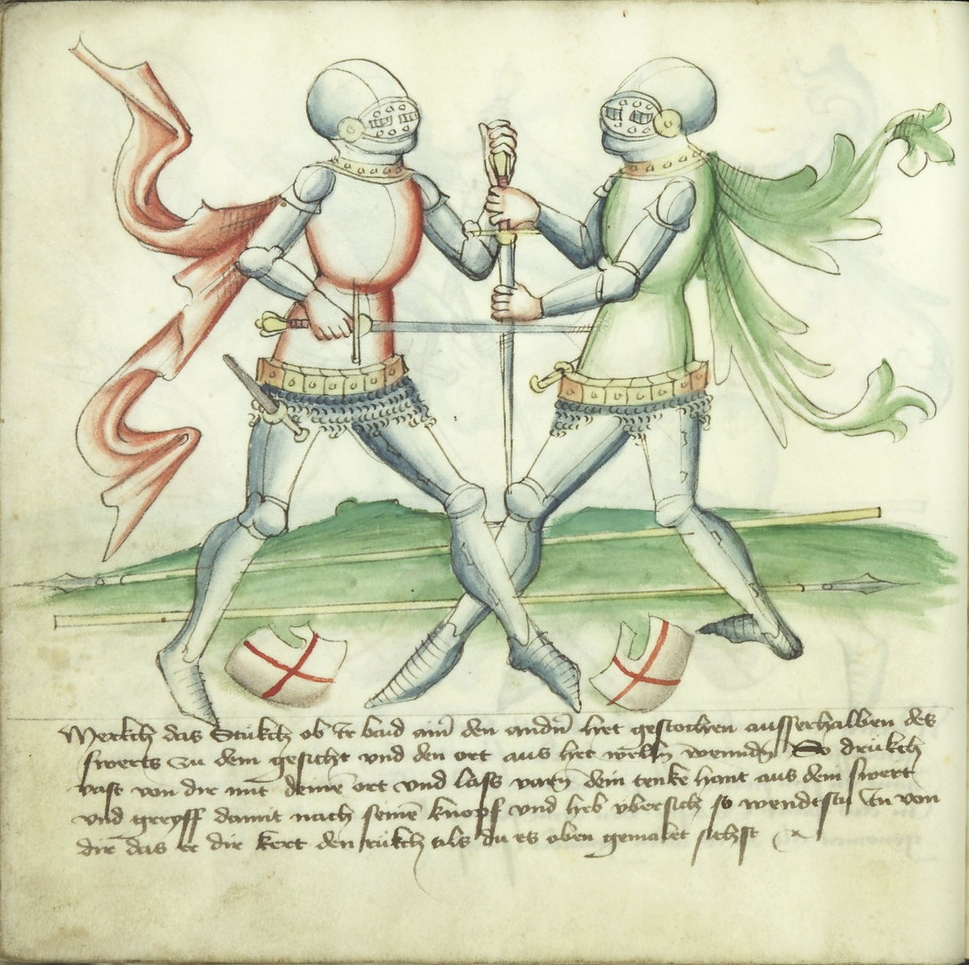 Merckh das Stuckh ob Er baid ain̄ den andn̄ het gestochen ausserhalben des
swerts zu dem gesicht vnd den ort aus het wellñ wenndñ So druckh
vast von dir mit deinē ort vnd lass varñ dein tenke hant aus dem swert
vnd greyff damit nach seinē knopf vnd heb vbersich so wendestu In von
dir das er dir kert den rukh als du es oben gemalet sichst